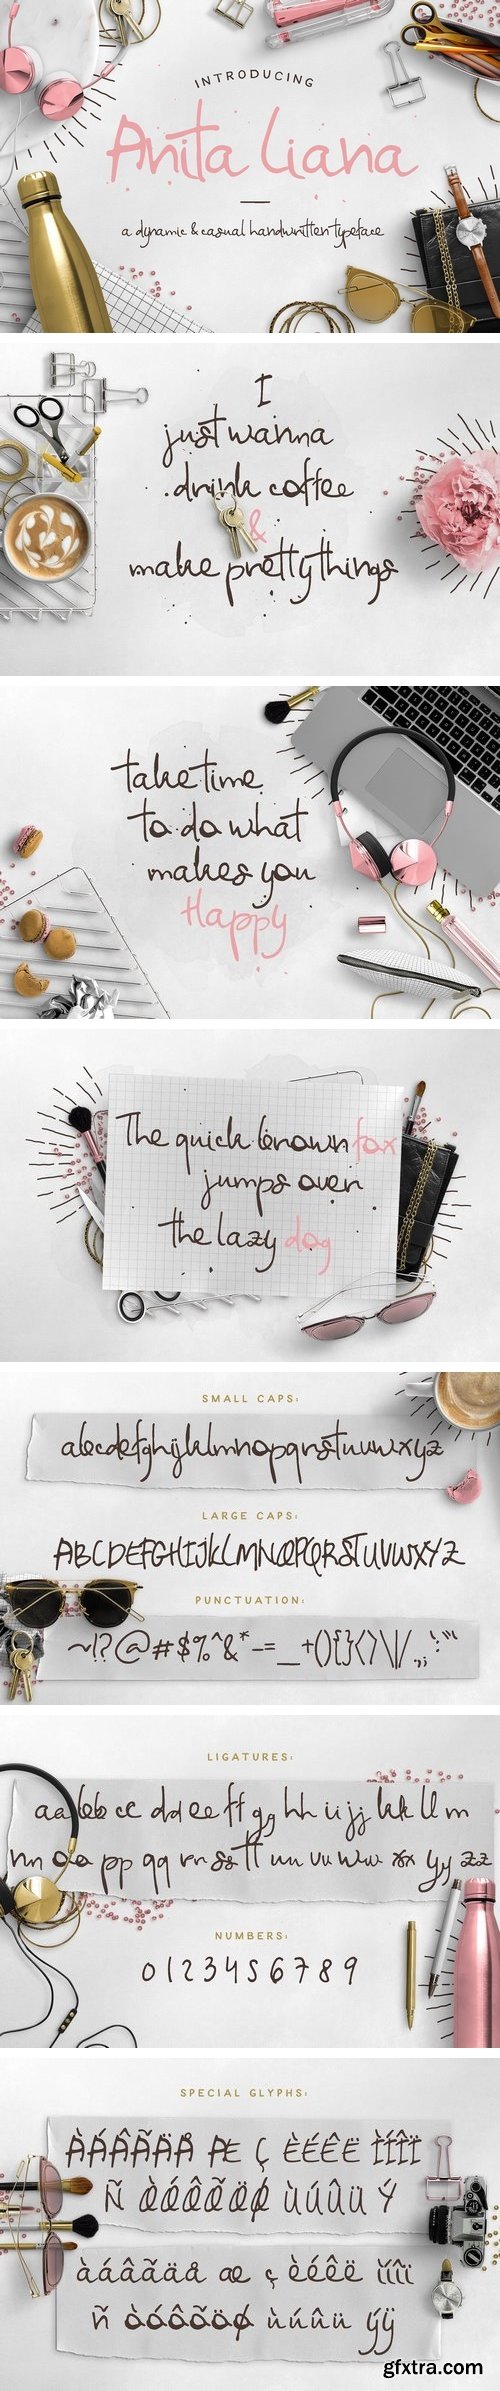 INTRODUCING
Anita Liana
a dynamic & casual handwritten typeface
I
just wanna
drink coffee
&
make pretty things
take time
to do what
makes you
Happy
The quick brown fox
jumps over
the lazy dog
SMALL CAPS:
abcdefghijklmnopqrstuvwxyz
LARGE CAPS:
ABCDEFGHIJKLMNOPQRSTUVWXYZ
PUNCTUATION:
~!?@#$%^&*-=_+(){}<>\|/.,;:'"
LIGATURES:
aa bb cc dd ee ff gg hh ii jj kk ll m
nn oo pp qq rr ss tt uu vv ww xx yy zz
NUMBERS:
0123456789
SPECIAL GLYPHS:
ÀÁÂÃÄÅ Æ Ç ÈÉÊË ÌÍÎÏ
Ñ ÒÓÔÕÖØ ÙÚÛÜ Ý
àáâãäå æ ç èéêë ìíîï
ñ òóôõöø ùúûü ýÿ
gfxtra.com